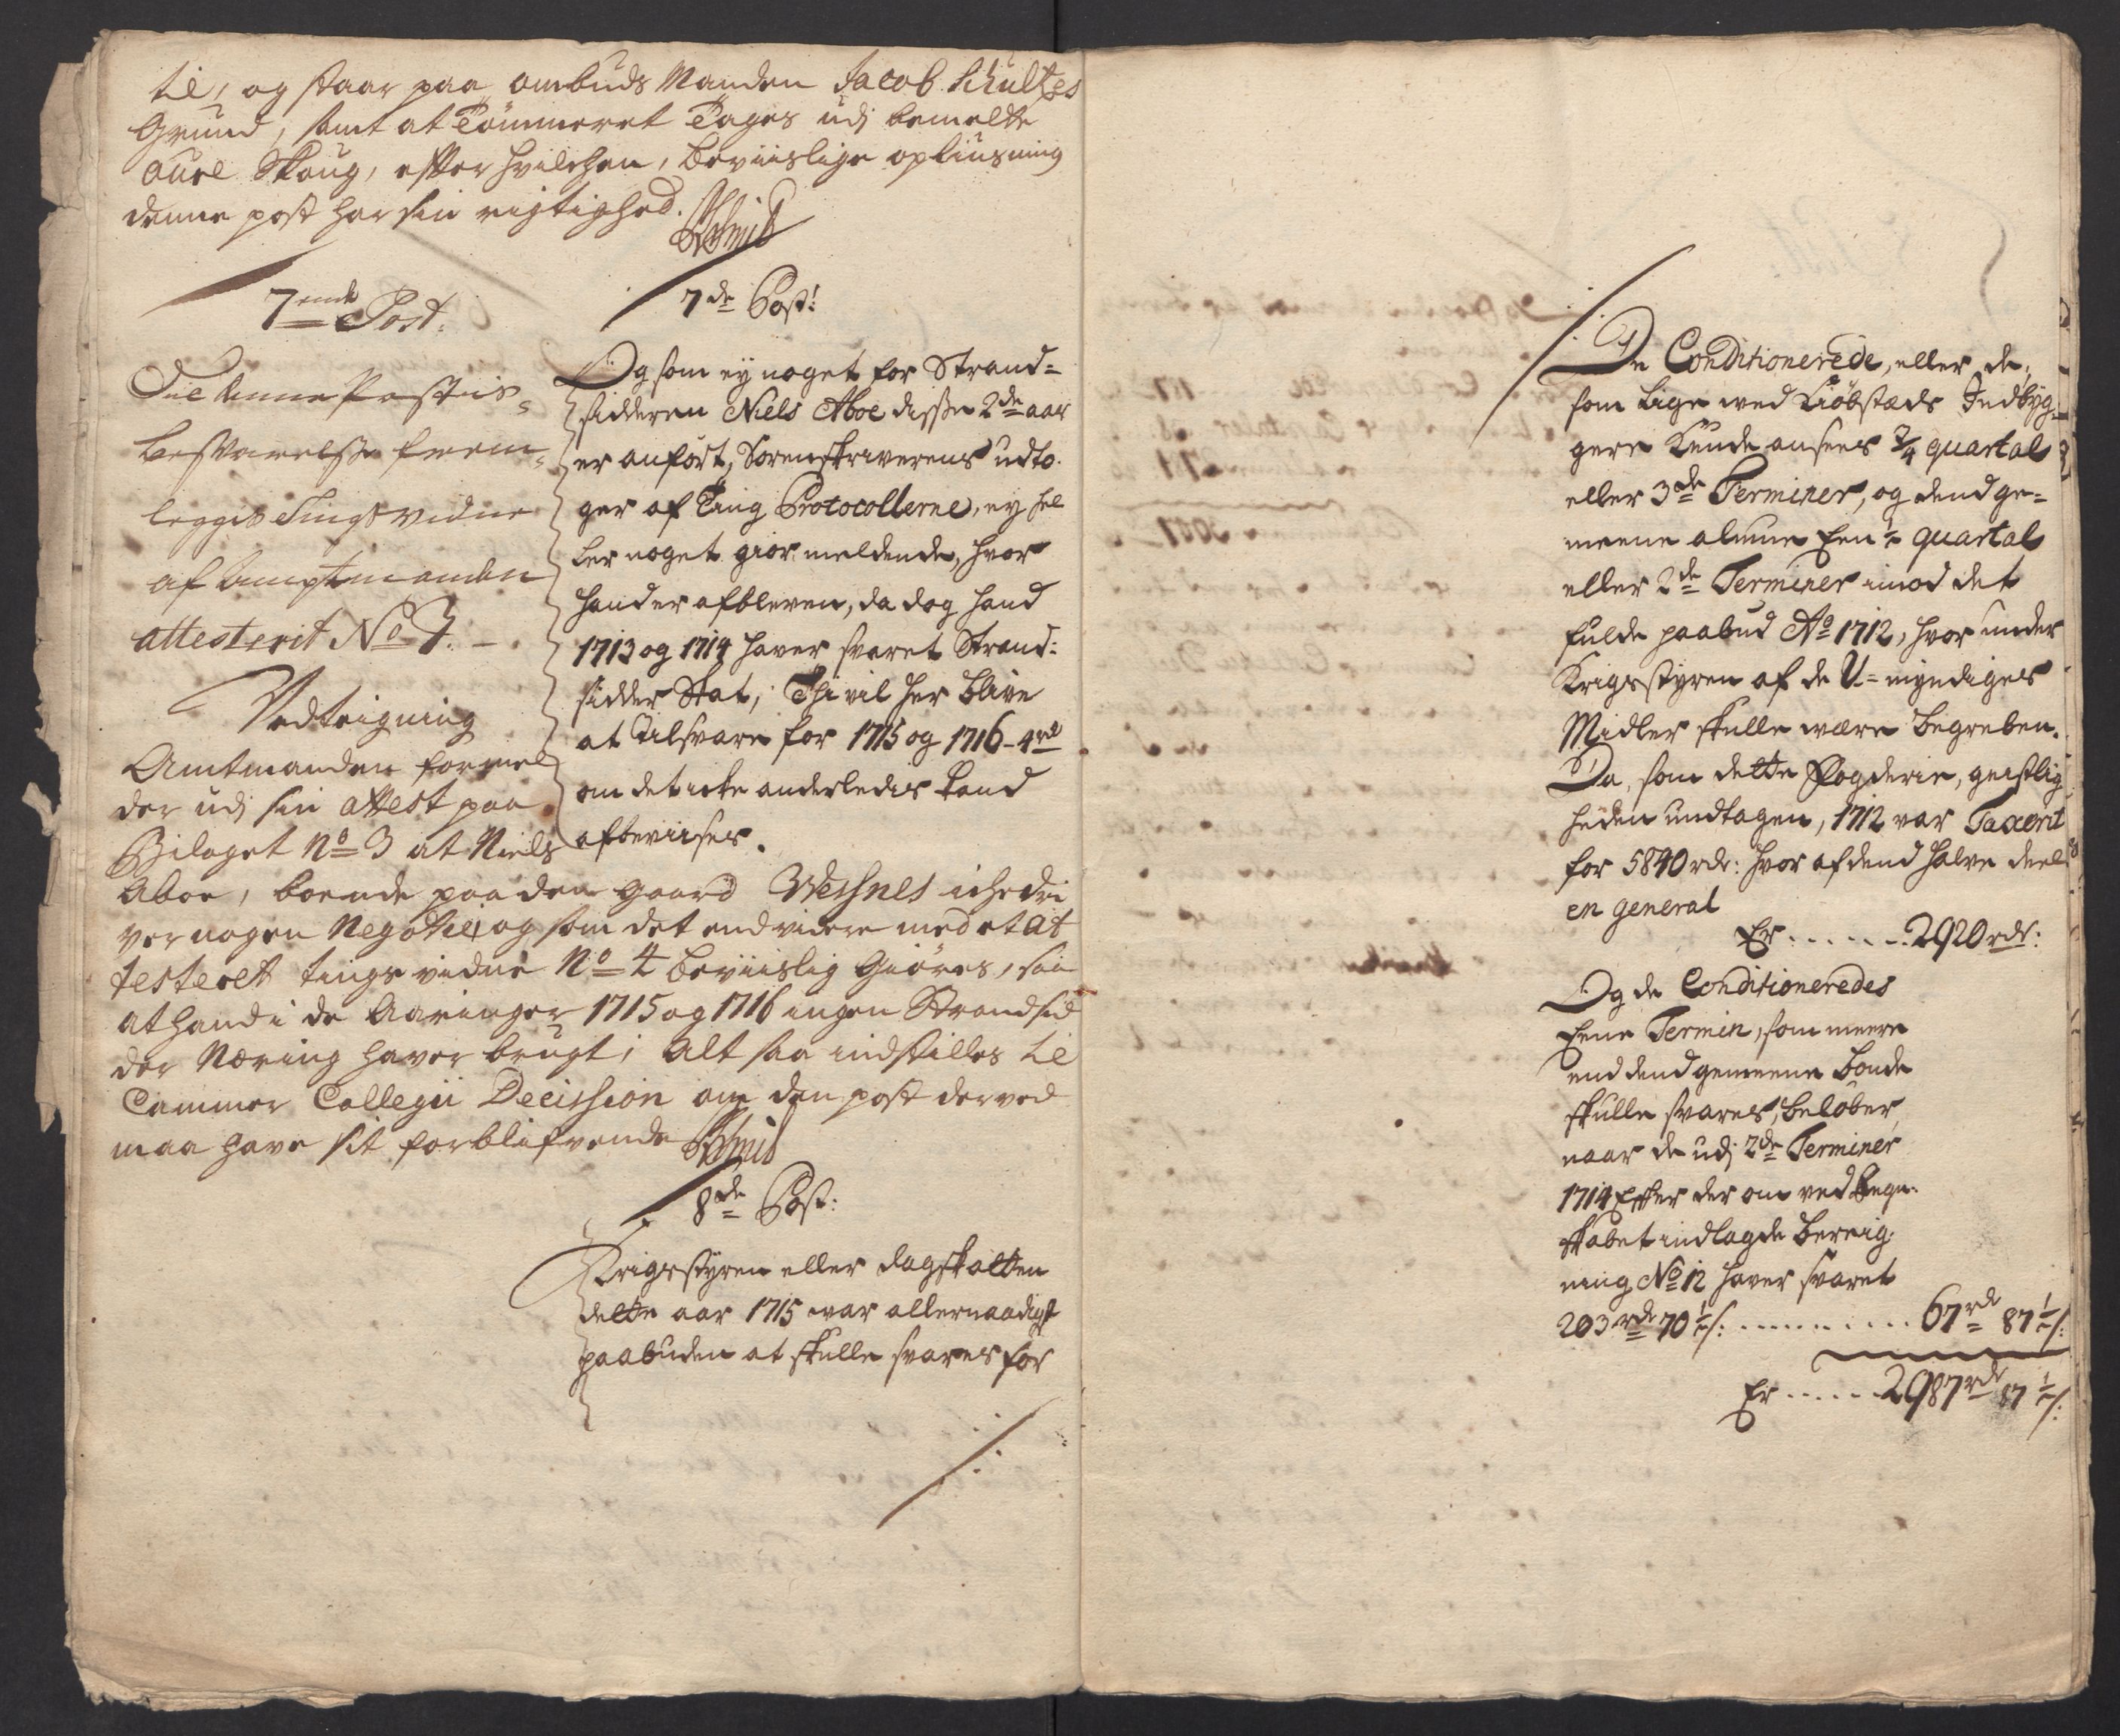 til, og staar paa ombuds Manden Jacob Schultzes
Grund, samt at Tømmeret Tages udj bemelte
Auel Skoug, effter hvilchen, beviislige opliusning
denne post har sin rigtighed.
7ende Post.
Til denne Postis
besvarelsse frem-
legges Tingsvidne
af Amptmanden
attesterit No 4. –
Vedteigning
Amtmanden formel
der udj sin attest paa
Bilaget No 3 at Niels
Aboe, boende paa den gaard Weshnes iche dri
ver nogen Negotie, og som det end videre med et at
testeret tings vidne No 4 beviislig Giøres, saa
at hand i de Aaringer 1715 og 1716 ingen Strandsid
der Næring haver brugt; Alt saa indstilles til
Cammer Collegii Decission om den post derved
maa have sit forblifvende
7de Post:
Og som ey noget for Strand=
sidderen Niels Aboe disse 2de aar
er anført, Sorenskriverens udto-
ger af Ting Protocollerne, ey hel
ler noget giør meldende, hvor
hand er afbleven, da dog hand
1713 og 1714 haver svaret Strand-
sidder Skat; Thi vil her blive
at Tilsvare for 1715 og 1716 - 4 rd
om det icke anderledis kand
afbeviises.
8de Post:
Krigsstyren eller dagskatten
dette aar 1715 war allernaadigst
paabuden at skulle svares for
De Conditionerede, eller de,
som lige med Kiøbstæds Indbyg-
gere kunde ansees 3/4 quartal
eller 3de Terminer, og dend ge-
meene almue Een 1/2 quartal
eller 2de Terminer imod det
fulde paabud Ao 1712, hvor under
Krigsstyren af de U-myndiges
Midler skulle være begreben.
Da, som dette Fogderie, geistlig
heden undtagen, 1712 var Taxerit
for 5840 rdr: hvor af dend halve deel
en general
Er . . . . . . 2920 rdr:
Og de Conditioneredes
Eene Termin, som meere
end dend gemeene bonde
skulle svares, beløber,
naar de udj 2de Terminer
1714 Effter der om ved Regn-
skabet indlagde bereig-
ning No 12 haver svaret
203 rd 70 1/2 s: . . . . . . . . . 67 rd 87 1/2 s:
Er . . . . . 2987 rd 87 1/2 s: